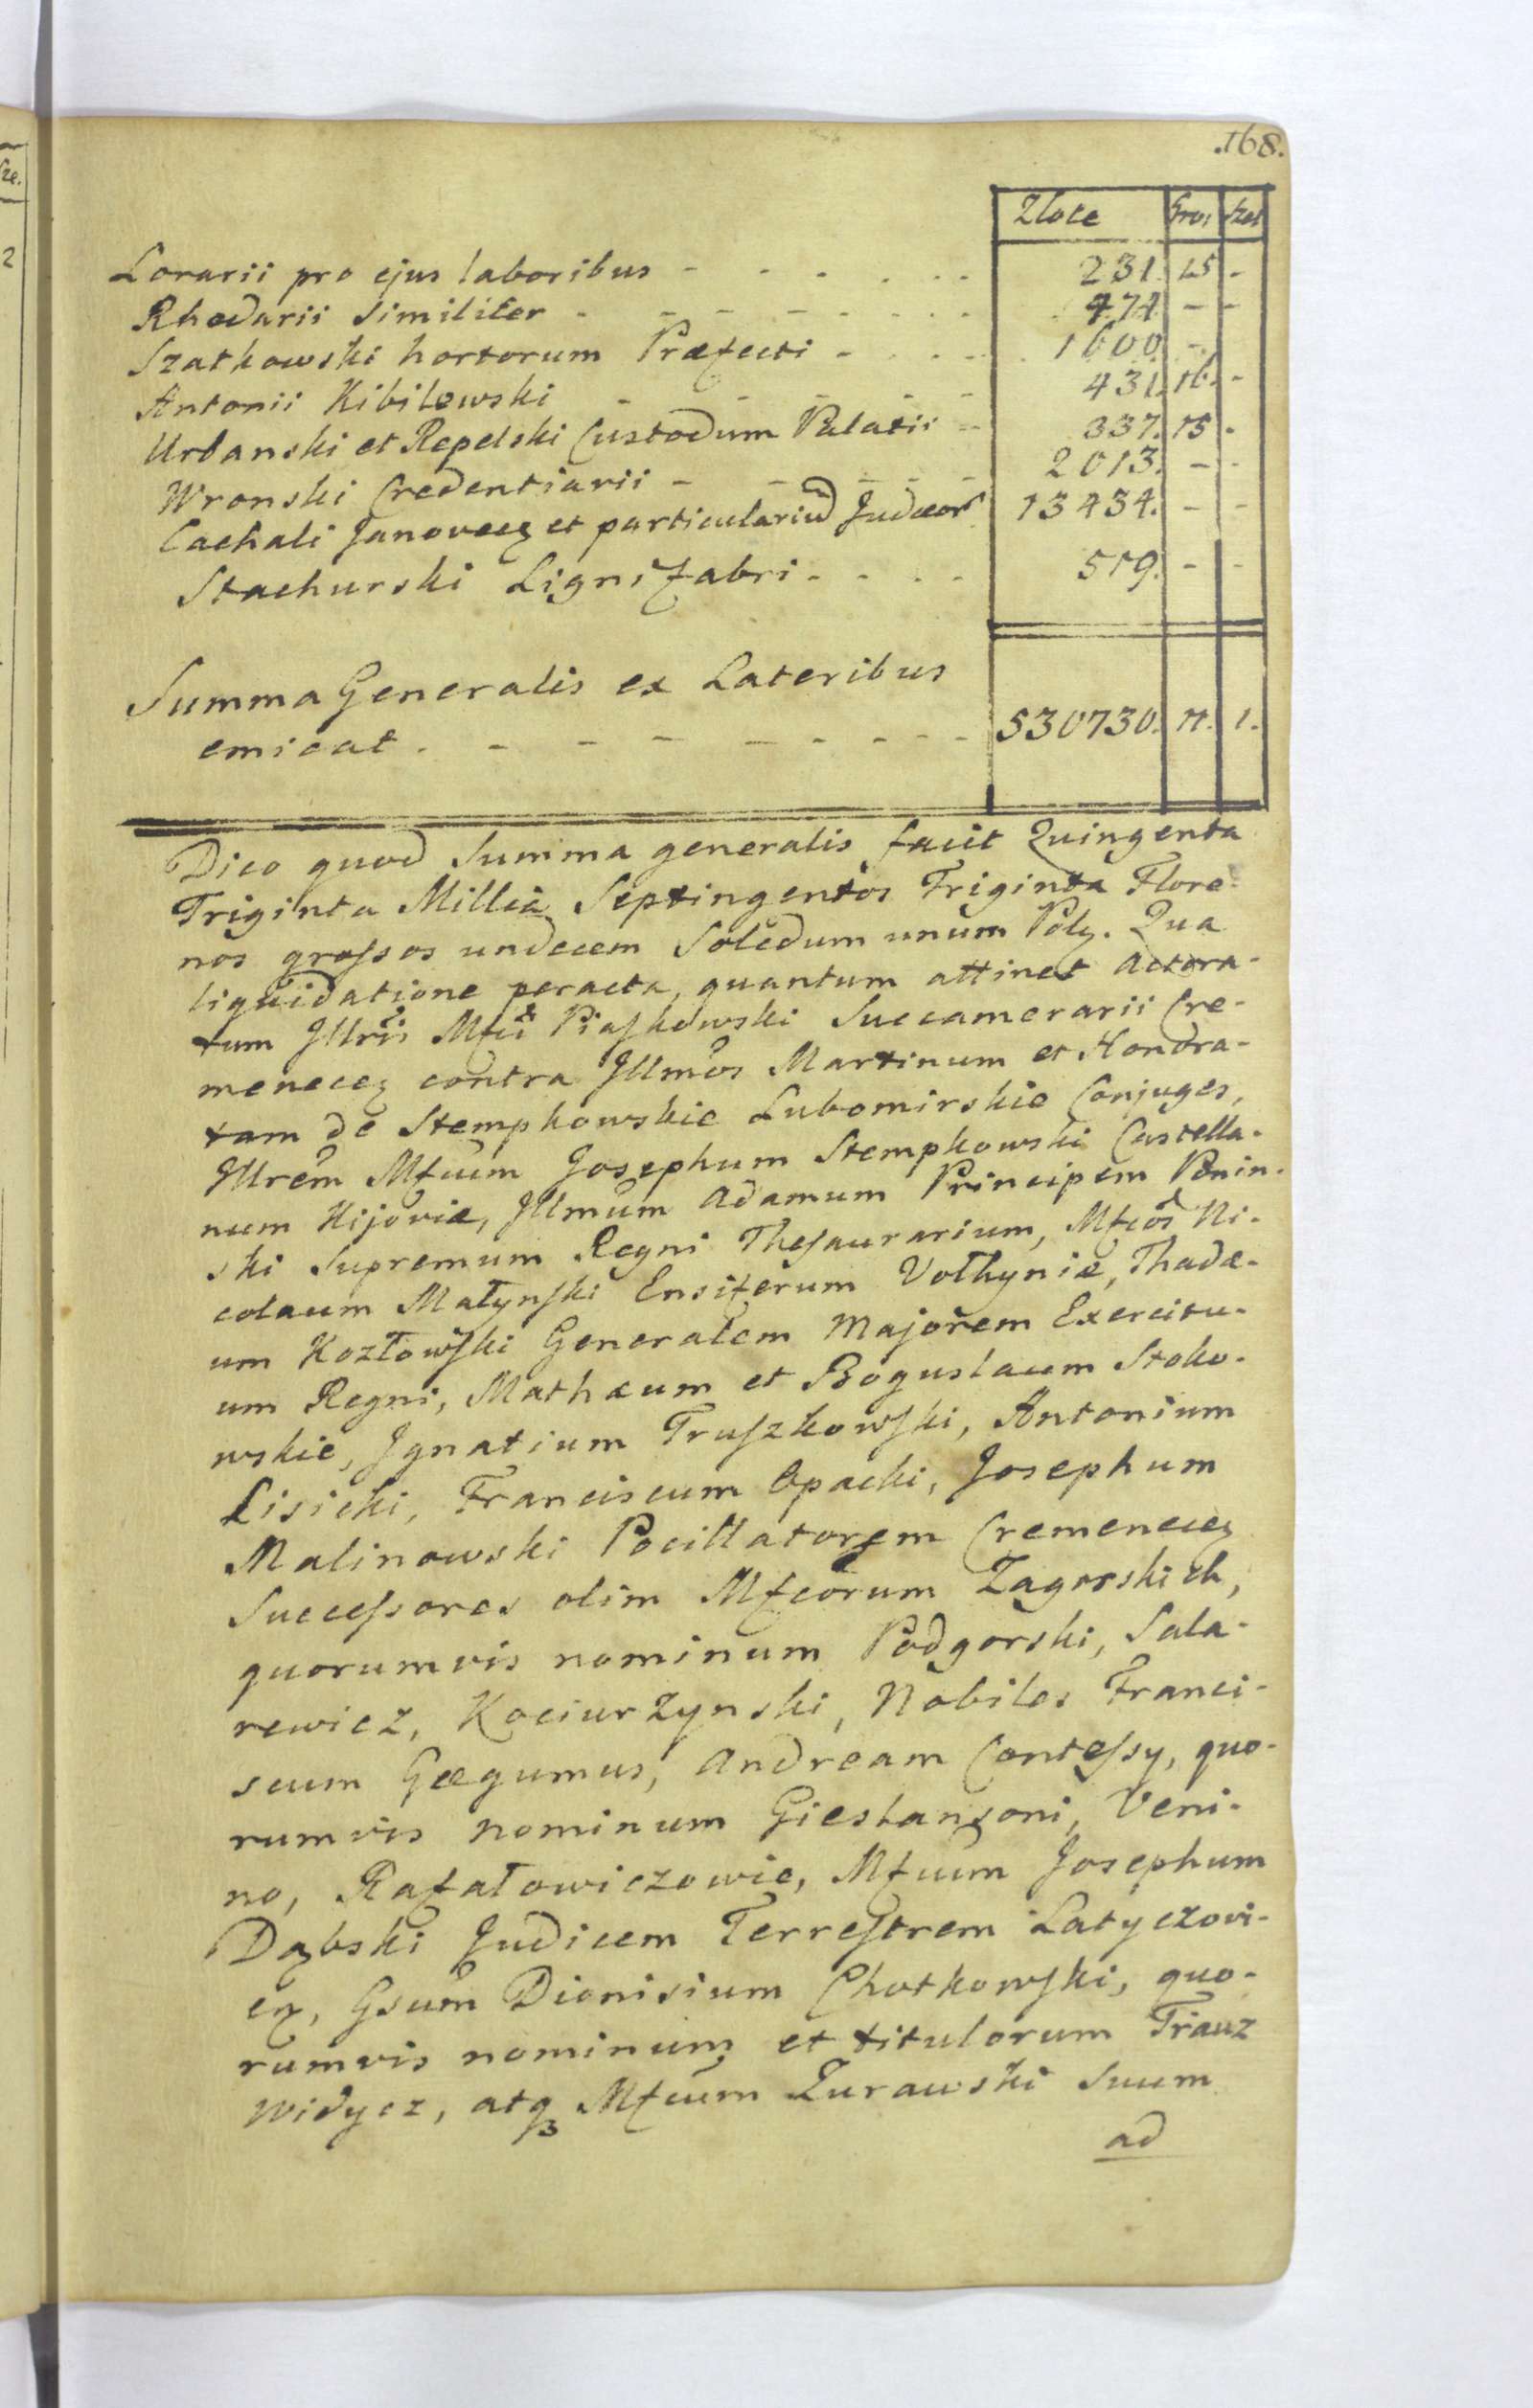 .168.
Złote Gros Szel
Lorarii pro ejus laboribus - - - - - - 231. 15 -
Rhedarii Similiter - - - - - - - - 474 - -
Szatkowski hortorum Præfecti - - - - 1600. -
Antonii Kibilewski - - - - 431. 16. -
Urbanski et Repelski Custodum Palatii - 337. 15 -
Wronski Credentiarii - - - - 2013. - -
Cachali Janovecz et particulariū Judæor 13434. - -
Stachurski Lignifabri - - - - 519. - -
Summa Generalis ex Lateribus
emicat. - - - - - - - - 530730. 11. 1.
Dico quod Summa generalis facit Quingenta
Triginta Millia Septingentos Triginta Flore-
nos grossos undecem Solidum unum Poly. Qua
liquidatione peracta, quantum attinet Actora-
tum Jllris Mfci Piaskowski Succamerarii Cre-
menecez contra Jllmos Martinum et Hondra-
tam de Stempkowskie Lubomirskie Conjuges,
Jllrem Mfcum Josephum Stempkowski Castella-
num Kijoviæ, Jllmum Adamum Principem Ponin-
ski Supremum Regni Thesaurarium, Mfcos Ni-
colaum Małynski Ensiferum Volhyniæ, Thadæ-
um Kozłowski Generalem Majorem Exercitu-
um Regni, Mathæum et Boguslaum Stoko-
wskie, Jgnatium Truszkowski, Antonium
Lisicki, Franciscum Opacki, Josephum
Malinowski Pocillatorem Cremenecez
Successores olim Mfcorum Zagorskich,
quorumvis nominum Podgorski, Sala-
rewicz, Kociurzynski, Nobiles Franci-
scum Gægumus, Andream Contessy, quo-
rumvis nominum Gieslanzoni, Veni-
no, Rafałowiczowie, Mfcum Josephum
Dąbski Judicem Terrestrem Latyczovi-
cz, Gsum Dionisium Chotkowski, quo-
rumvis nominum et titulorum Trauz
widycz, atq3 Mfcum Zurawski Suum
ad